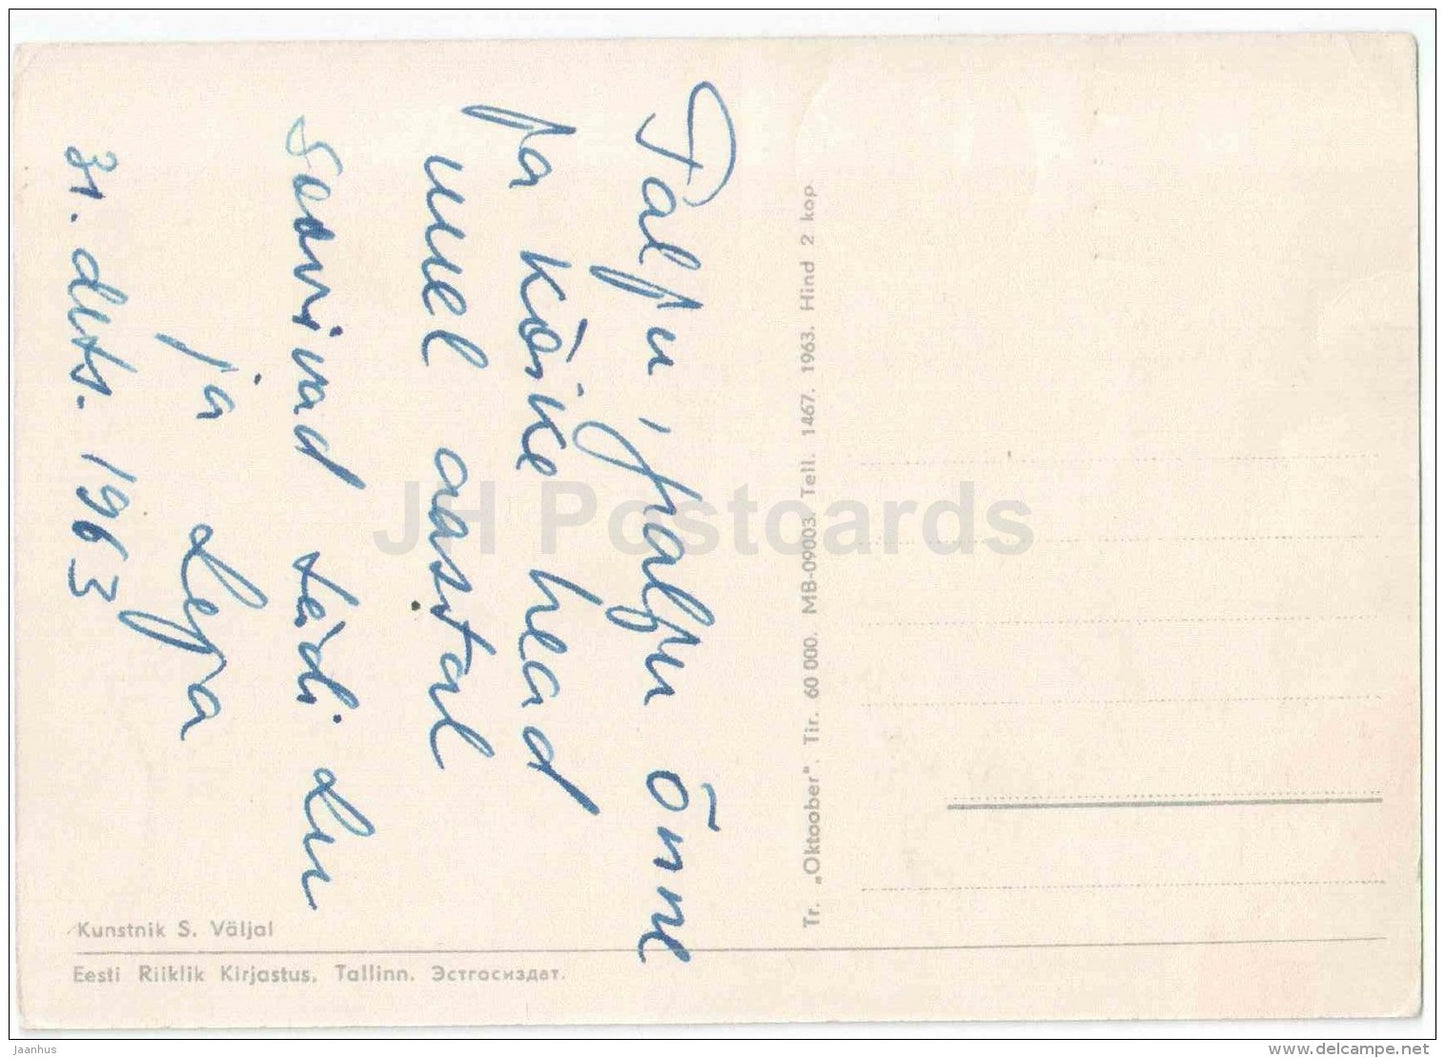 Palju, palju õnne
ja kõike head
uuel aastal
soovivad teidi
ja Leja
31. dets. 1963
Tr. „Oktoober". Tir. 60 000. MB-09003. Tell. 1467. 1963. Hind 2 kop.
Kunstnik S. Väljal
Eesti Riiklik Kirjastus, Tallinn. Эстгосиздат.
JH Postcards
jaanhus
www.delcampe.net